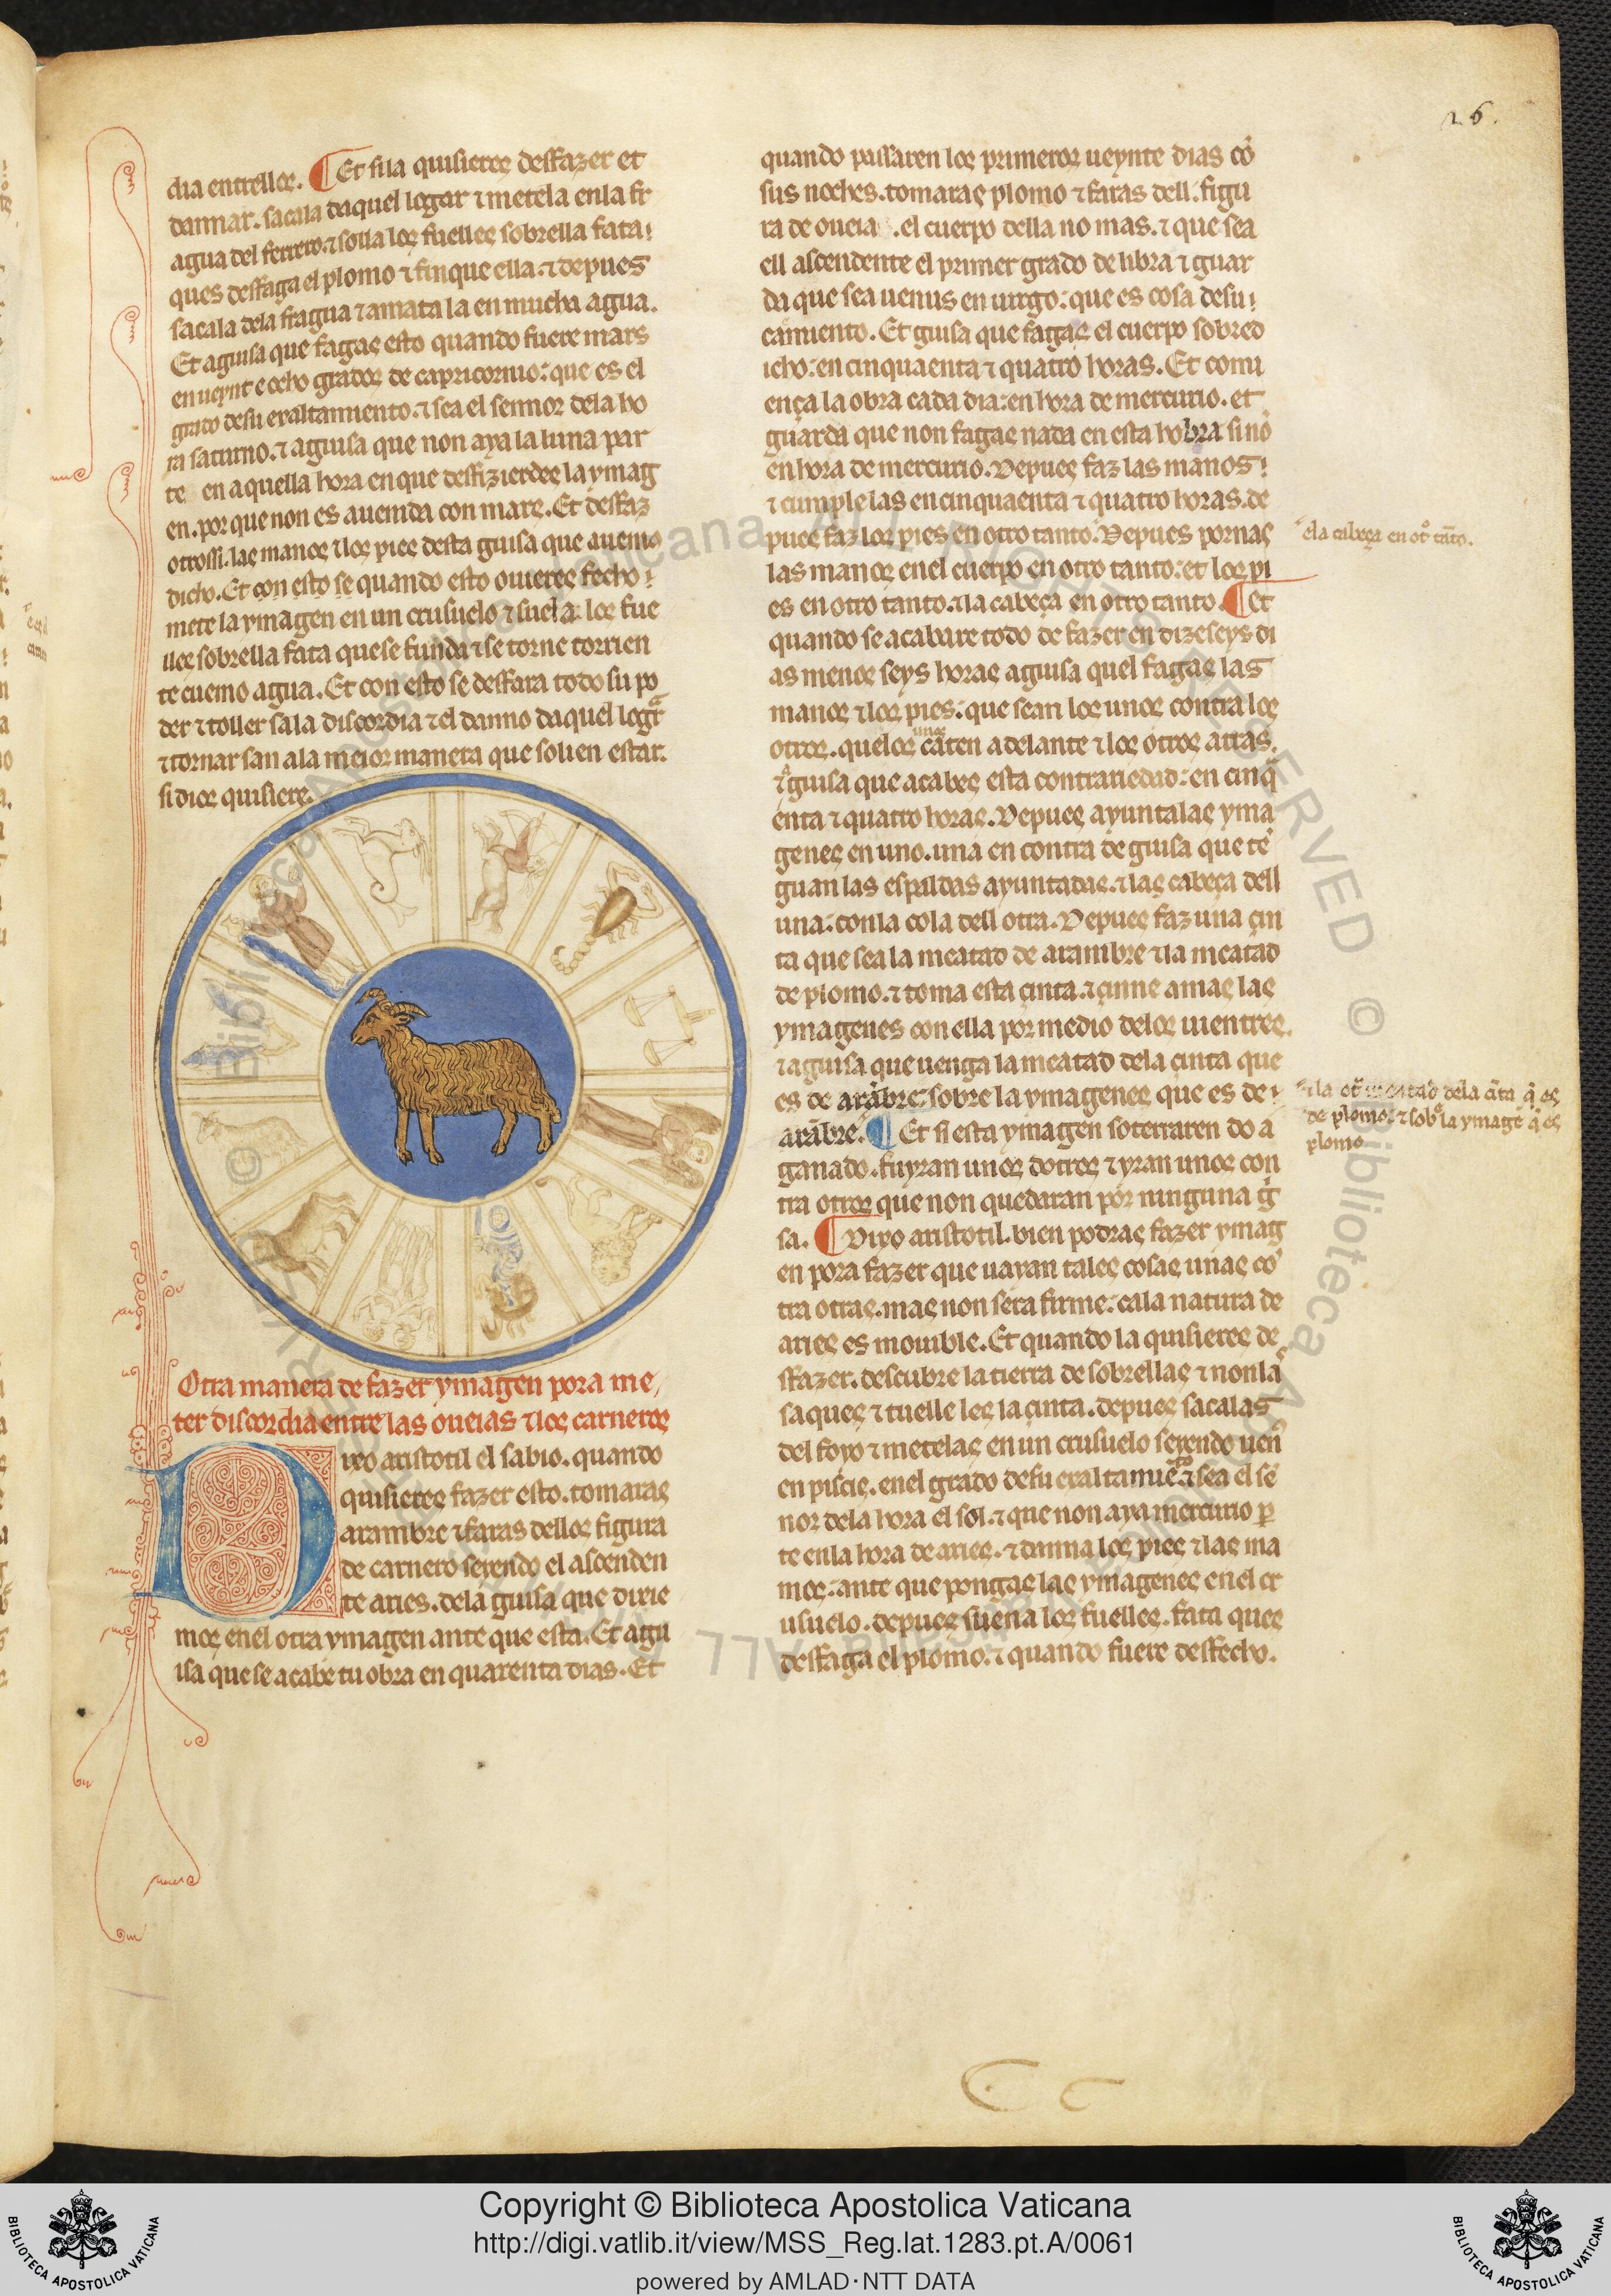 26.
dia entrellos. ¶ Et si la quisieres desfazer et
dannar. sacala daquel logar ⁊ metela en la fr
agua del ferrero. ⁊ solla los fuelles sobrella fata
ques desfaga el plomo ⁊ finque ella. ⁊ depues
sacala dela fragua ⁊ amata la en mucha agua.
Et aguisa que fagas esto quando fuere mars
en ueynte ocho grados de capricornio: que es el
grado de su exaltamiento. ⁊ sea el sennor dela ho
ra saturno. ⁊ aguisa que non aya la luna par
te en aquella hora en que desfizierdes la ymag
en. por que non es auenida con mars. Et desfaz
otrossi. las manos ⁊ los pies desta guisa que auemos
dicho. Et con esto se quando esto ouieres fecho
mete la ymagen en un crusuelo ⁊ suela los fue
lles sobrella fata que se funda ⁊ se torne corrien
te cuemo agua. Et con esto se desfara todo su po
der ⁊ toller sa la discordia ⁊ el danno daquel logar
⁊ tornar san ala meior manera que solien estar.
si dios quisiere.
Otra manera de fazer ymagen pora me
ter discordia entre las oueias ⁊ los carneros
Dixo aristotil el sabio. quando
quisieres fazer esto. tomaras
arambre ⁊ faras dellos figura
de carnero seyendo el ascenden
te aries. dela guisa que dixie
mos enel otra ymagen ante que esta. Et agu
isa que se acabe tu obra en quarenta dias. Et
quando passaren los primeros ueynte dias cō
sus noches. tomaras plomo ⁊ faras dell. figu
ra de oueia . el cuerpo della no mas. ⁊ que sea
ell ascendente el primer grado de libra ⁊ guar
da que sea uenus en uirgo: que es cosa de su
camiento. Et guisa que fagas el cuerpo sobred
icho: en cinquaenta ⁊ quatro horas. Et comi
ença la obra cada dia: en hora de mercurio. et
guarda que non fagas nada en esta hobra sinō
en hora de mercurio. Depues faz las manos
⁊ cumple las en cinquaenta ⁊ quatro horas. de
pues faz los pies en otro tanto. Depues pornas
ela cabeça en ot̄ tāto.
las manos enel cuerpo en otro tanto: et los pi
es en otro tanto. ⁊ la cabeça en otro tanto. ¶ Et
quando se acabare todo de fazer en dizeseys di
as menos seys horas aguisa quel fagas las
manos ⁊ los pies: que sean los unos contra los
otros. que los unos caten adelante ⁊ los otros atras.
⁊ guisa que acabes esta contrariedad: en cinq̄
enta ⁊ quatro horas. Depues ayunta las yma
genes en uno. una en contra de guisa que tē
guan las espaldas ayuntadas. ⁊ las cabeça dell
una: con la cola dell otra. Depues faz una çin
ta que sea la meatad de arambre ⁊ la meatad
de plomo. ⁊ toma esta çinta. ⁊ çinne amas las
ymagenes con ella por medio delos uientres.
⁊ aguisa que uenga la meatad dela çinta que
es de arābre: sobre la ymagenes que es de
⁊ la ot̄ meatad dela çīta q̄ es
de plomo: ⁊ sob̄ la ymagē q̄ es
plomo
arābre. ¶ Et si esta ymagen soterraren do a
ganado. fuyran unos dotros ⁊ yran unos con
tra otros que non quedaran por ninguna ḡ
sa. ¶ Dixo aristotil. bien podras fazer ymag
en pora fazer que uayan tales cosas unas cō
tra otras. mas non sera firme: ca la natura de
aries es mouible. Et quando la quisieres de
sfazer. descubre la tierra de sobrellas ⁊ non las
saques ⁊ tuelle les la çinta. depues sacalas
del foyo ⁊ metelas en un crusuelo seyendo uen̄
en piscis. enel grado de su exaltamiēto. ⁊ sea el sē
nor dela hora el sol. ⁊ que non aya mercurio ꝑ
te en la hora de aries. ⁊ danna los pies ⁊ las ma
mos: ante que pongas las ymagenes enel cr
usuelo. depues suena los fuelles. fata ques
desfaga el plomo. ⁊ quando fuere desfecho.
Copyright © Biblioteca Apostolica Vaticana
http://digi.vatlib.it/view/MSS_Reg.lat.1283.pt.A/0061
powered by AMLAD·NTT DATA
BIBLIOTECA APOSTOLICA VATICANA
BIBLIOTECA APOSTOLICA VATICANA